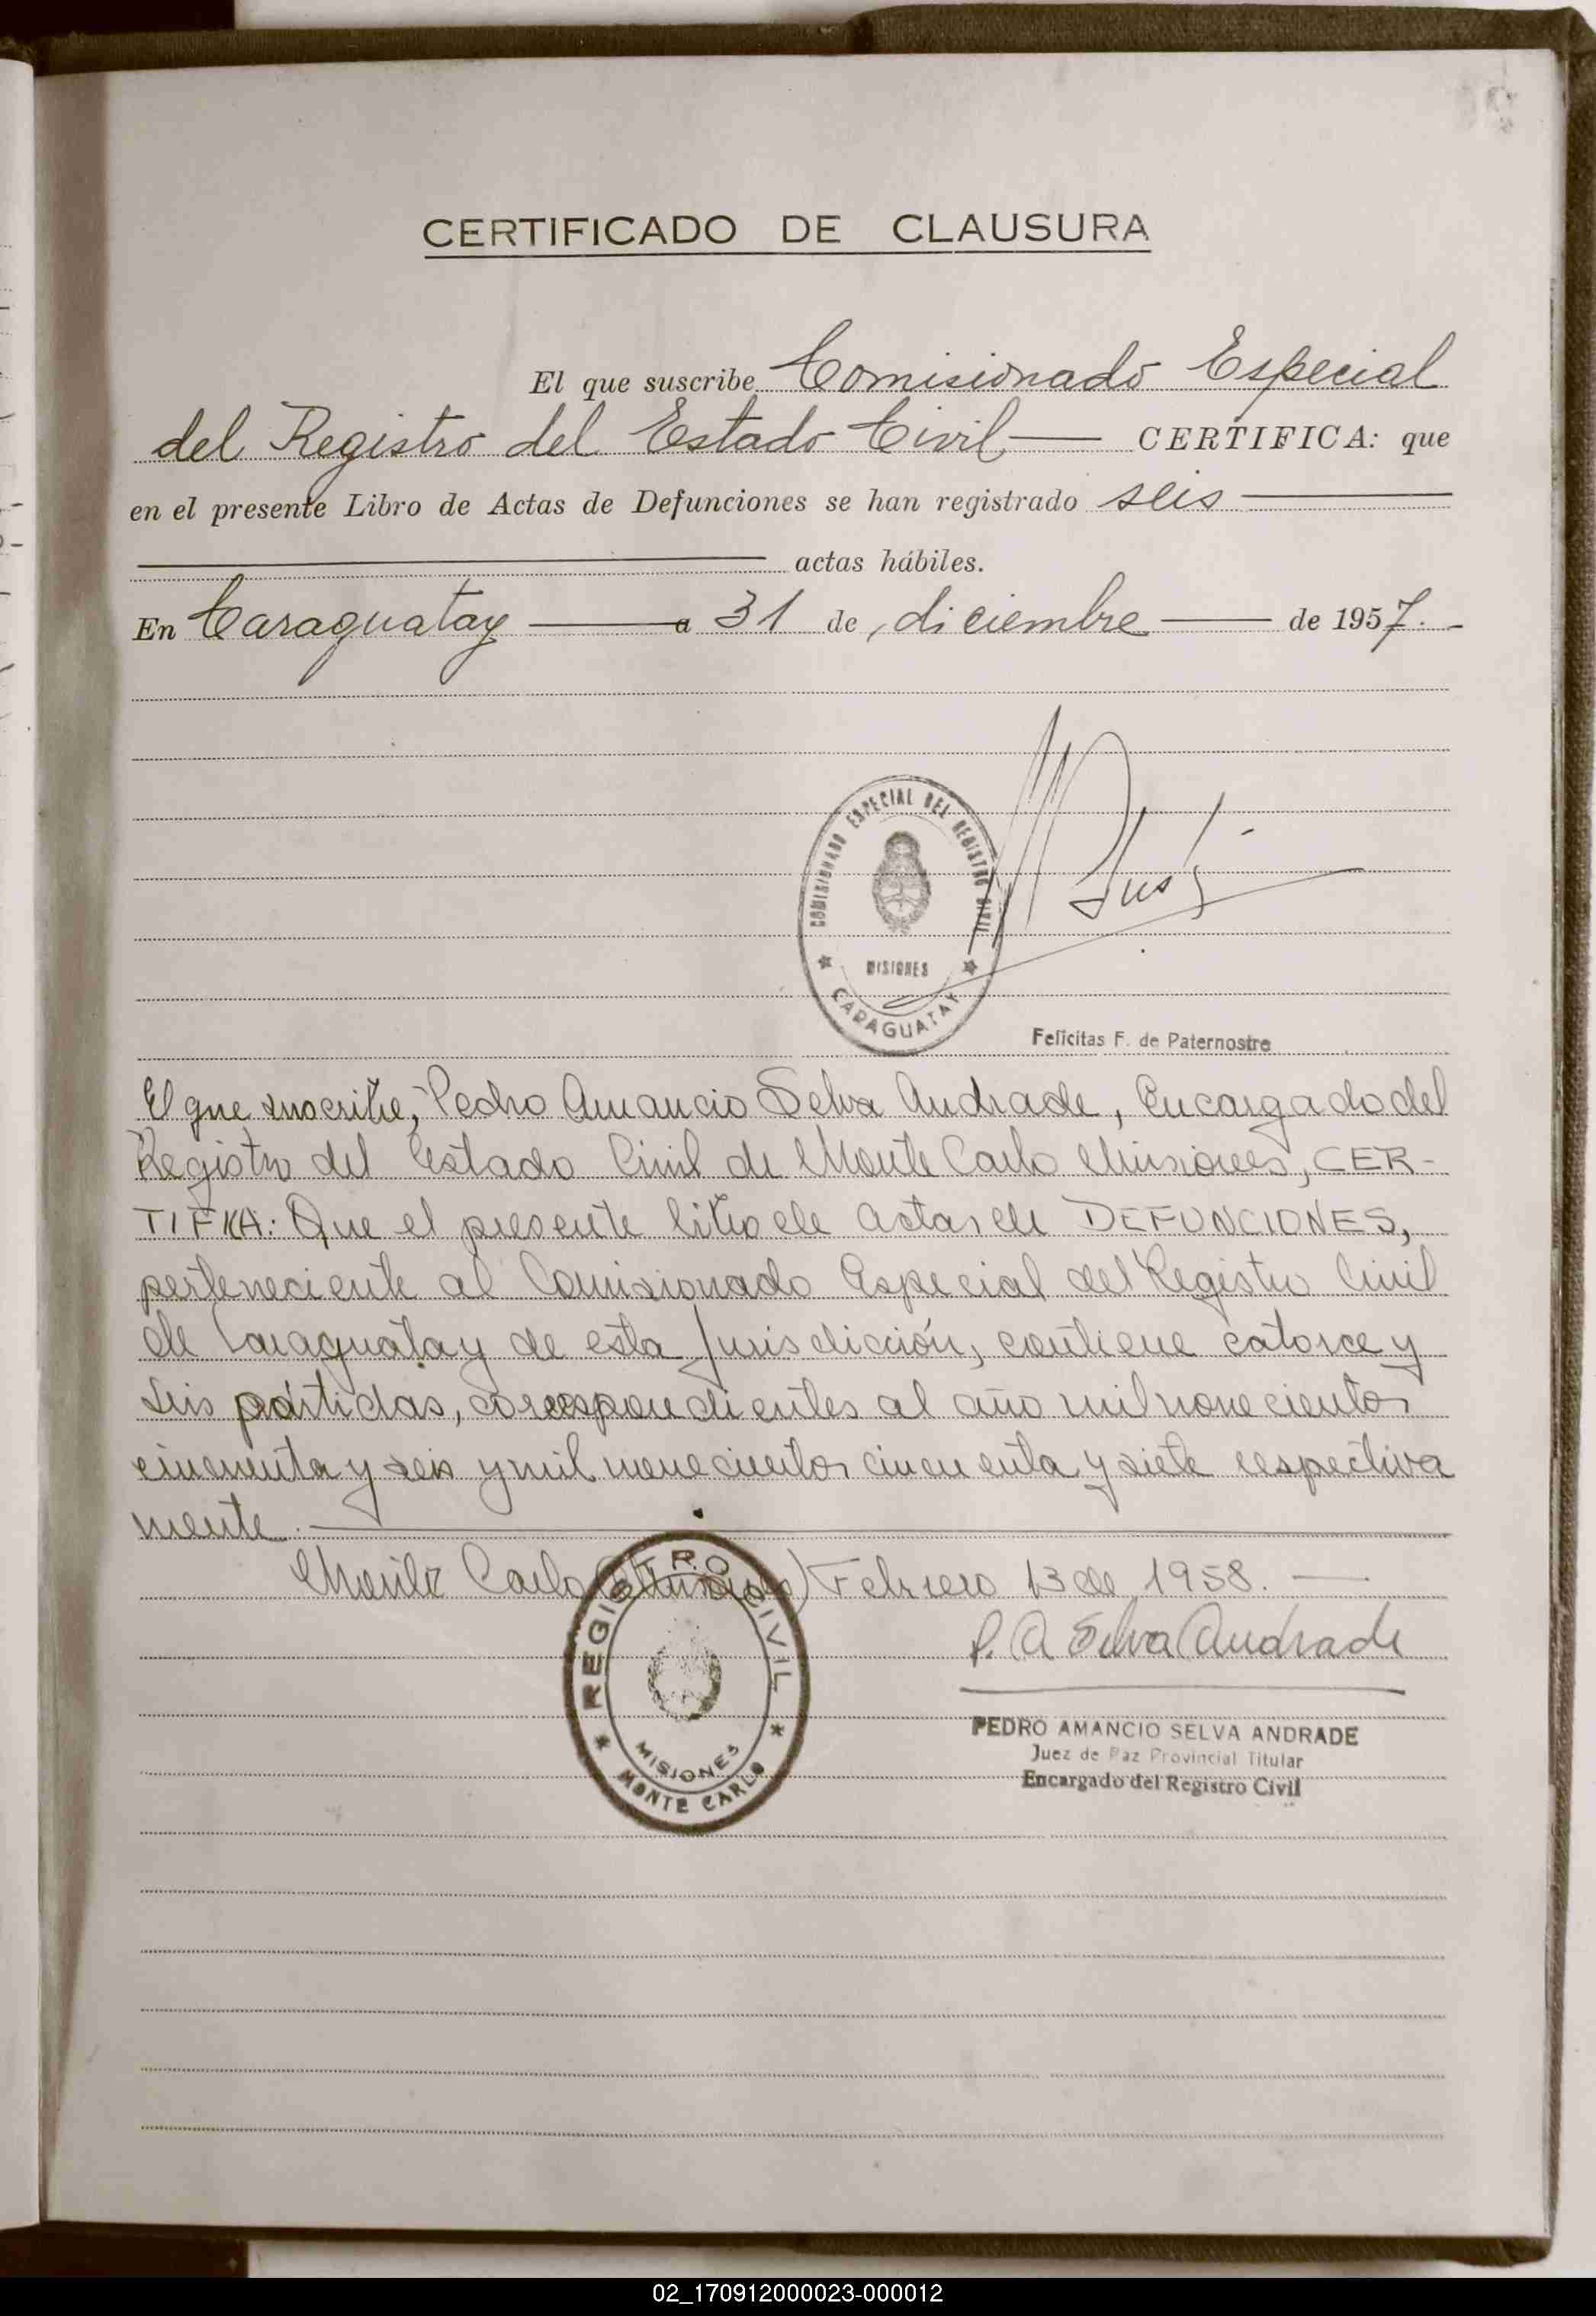 CERTIFICADO DE CLAUSURA
El que suscribe Comisionado Especial
del Registro del Estado Civil CERTIFICA: que
en el presente Libro de Actas de Defunciones se han registrado seis
actas hábiles.
En Caraguatay a 31 de diciembre de 1957.
COMISIONADO ESPECIAL DEL REGISTRO CIVIL
MISIONES
CARAGUATAY
Felicitas F. de Paternostre
El que suscribe, Pedro Amancio Selva Andrade, Encargado del
Registro del Estado Civil de Monte Carlo Misiones, CER-
TIFICA: Que el presente libro de actas de DEFUNCIONES,
perteneciente al Comisionado Especial del Registro Civil
de Caraguatay de esta Jurisdicción, contiene catorce y
seis partidas, correspondientes al año mil novecientos
cincuenta y seis y mil novecientos cincuenta y siete respectiva
mente.
Monte Carlo (Misiones) Febrero 13 de 1958.
P. A Selva Andrade
REGISTRO CIVIL
MISIONES
MONTE CARLO
PEDRO AMANCIO SELVA ANDRADE
Juez de Paz Provincial Titular
Encargado del Registro Civil
02_170912000023-000012